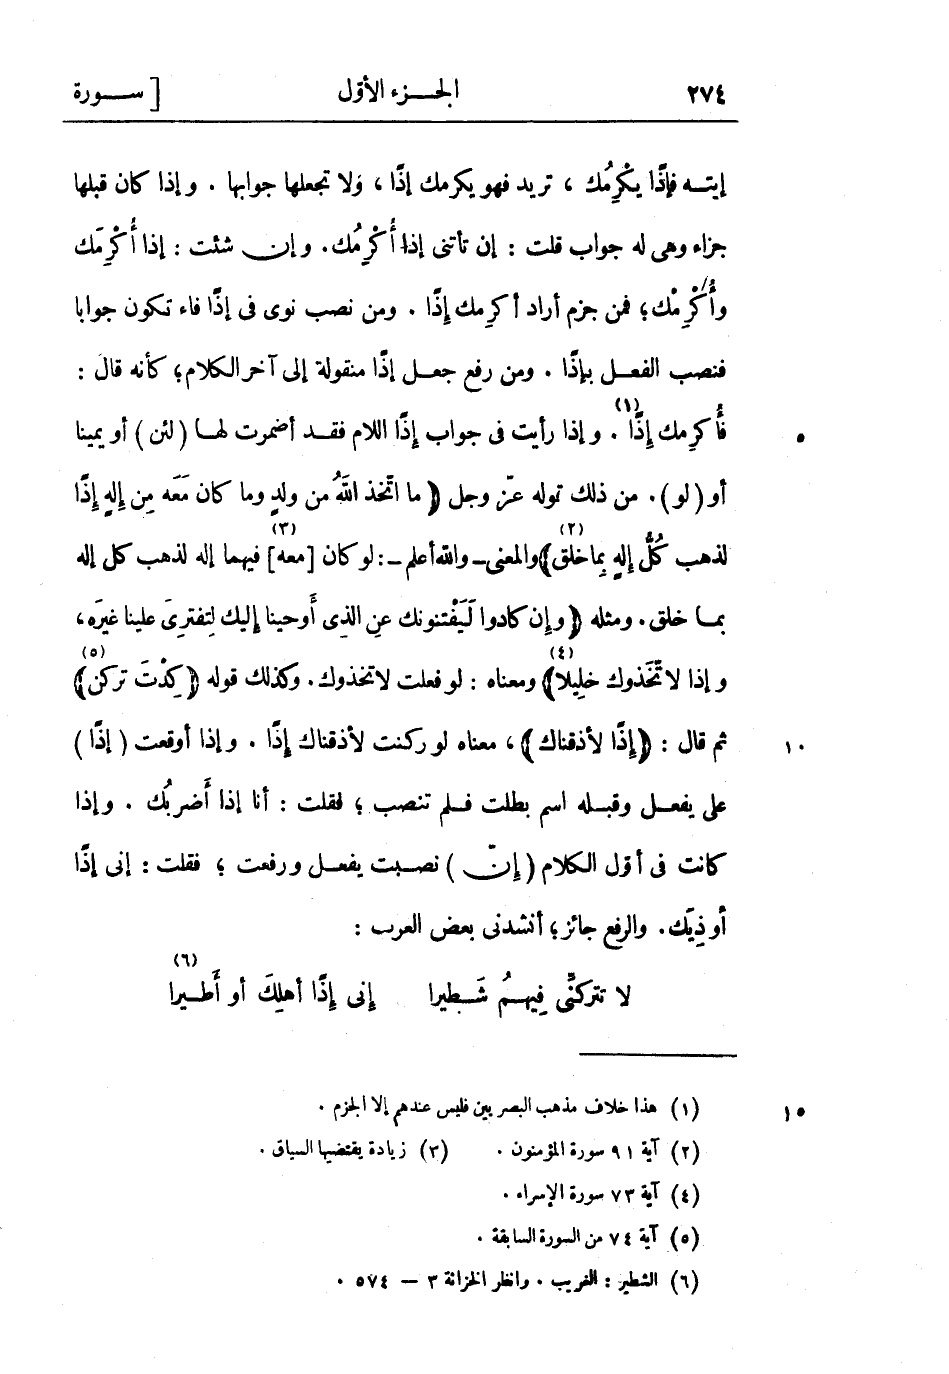 ٢٧٤ الجزء الأول [ سورة
إيته فإذًا يكْرِمُك ، تريد فهو يكرمك إذًا ، وَلا تجعلها جوابها . وإذا كان قبلها
جزاء وهى له جواب قلت : إن تأتنى إذا أُكْرِمُك . وإن شئت : إذا أُكْرِمَك
وأُكْرِمْك؛ فمن جزم أراد أكرِمك إذًا . ومن نصب نوى فى إذًا فاء تكون جوابا
فنصب الفعل بإذًا . ومن رفع جعل إذًا منقولة إلى آخر الكلام؛ كأنه قال :
فأُكرِمك إذًا (١) . وإذا رأيت فى جواب إذًا اللام فقد أضمرت لها (لئن) أو يمينا ٥
أو (لو) . من ذلك قوله عزّ وجل ﴿ ما اتَّخذ اللهُ من ولدٍ وما كان مَعَه مِن إلهٍ إذًا
لذهب كُلُّ إلهٍ بِما خلق ﴾ (٢) والمعنى ــ والله أعلم ــ : لو كان [معه] (٣) فيهما إله لذهب كل إله
بما خلق . ومثله ﴿ وإن كادوا لَيَفْتنونك عنِ الذى أوحينا إليك لِتفترىَ علينا غيرَه ،
وإذا لاتَّخَذوك خليلا ﴾ (٤) ومعناه : لو فعلت لاتخذوك . وكذلك قوله ﴿ كِدْتَ تركن ﴾ (٥)
ثم قال : ﴿ إذًا لأذقناك ﴾ ، معناه لو ركنت لأذقناك إذًا . وإذا أوقعت (إذًا) ١٠
على يفعل وقبله اسم بطلت فلم تنصب ؛ فقلت : أنا إذا أَضربُك . وإذا
كانت فى أوّل الكلام (إنّ) نصبت يفعل ورفعت ؛ فقلت : إنى إذًا
أوذِيَك . والرفع جائز؛ أنشدنى بعض العرب :
لا تتركنِّى فِيهمُ شَطِيرا إنى إذًا أهلِكَ أو أَطيرا (٦)
(١) هذا خلاف مذهب البصريين فليس عندهم إلا الجزم . ١٥
(٢) آية ٩١ سورة المؤمنون . (٣) زيادة يقتضيها السياق .
(٤) آية ٧٣ سورة الإسراء .
(٥) آية ٧٤ من السورة السابقة .
(٦) الشطير : الغريب . وانظر الخزانة ٣ — ٥٧٤ .